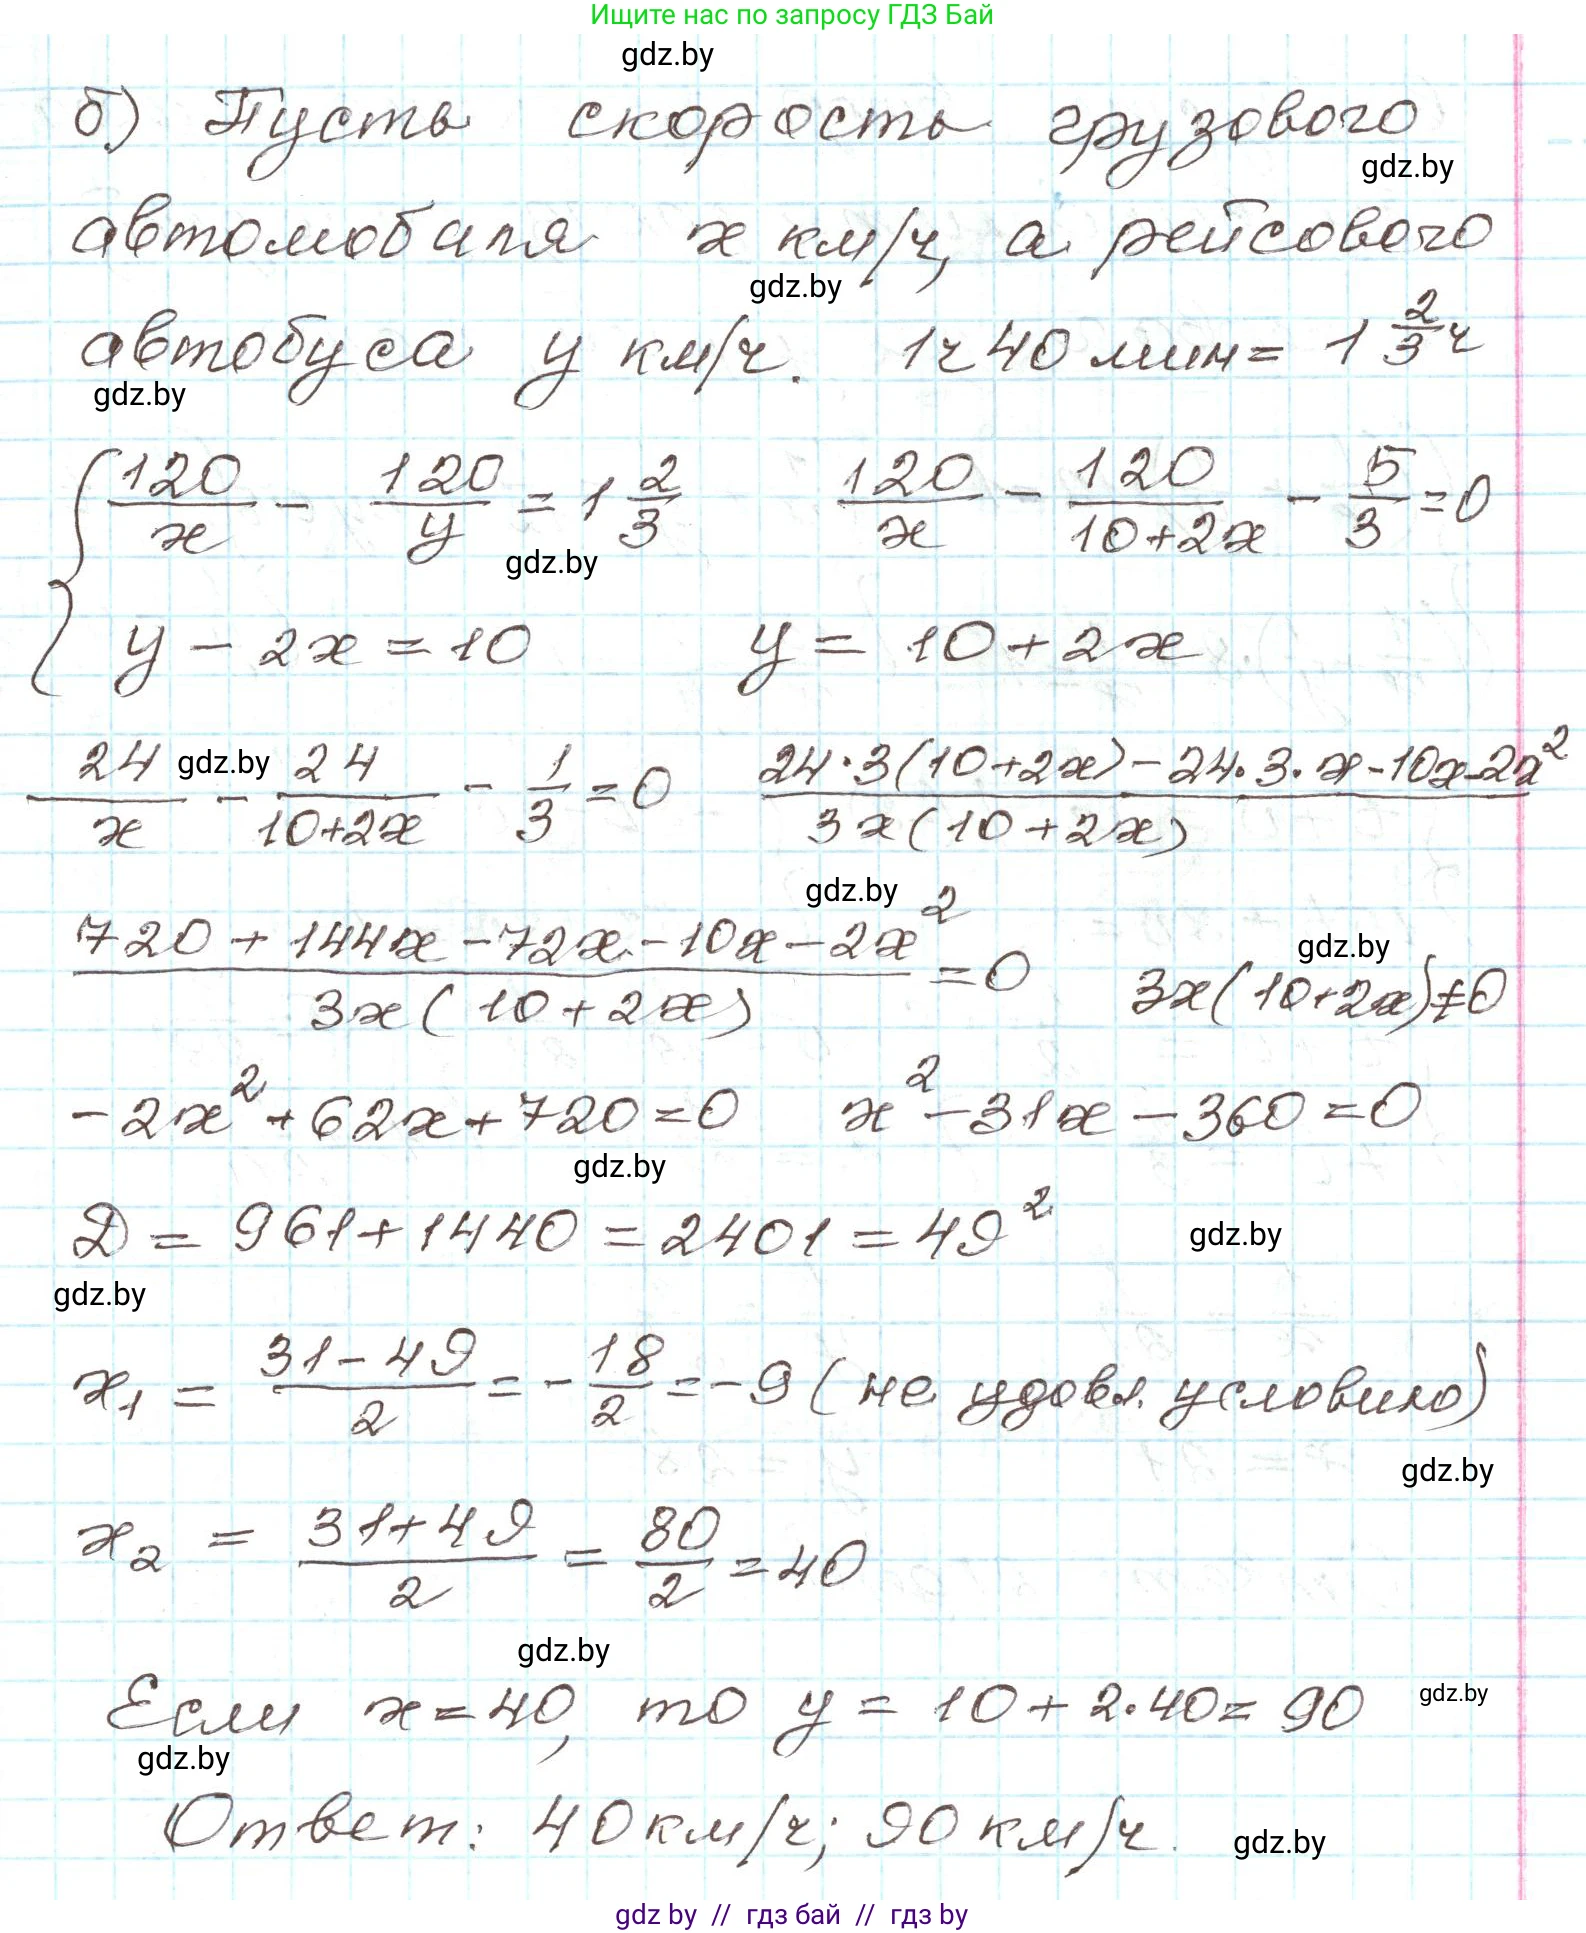 Ищите нас по запросу ГДЗ Бай
gdz.by
б) Пусть скорость грузового
gdz.by
автомобиля x км/ч, а рейсового
gdz.by
автобуса y км/ч. 1ч 40 мин = 1 2/3 ч
gdz.by
{ 120/x - 120/y = 1 2/3   120/x - 120/(10+2x) - 5/3 = 0
gdz.by
y - 2x = 10   y = 10 + 2x
24/x - 24/(10+2x) - 1/3 = 0   (24·3(10+2x) - 24·3·x - 10x - 2x²)/(3x(10+2x))
gdz.by
gdz.by
(720 + 144x - 72x - 10x - 2x²)/(3x(10+2x)) = 0   3x(10+2x) ≠ 0
gdz.by
-2x² + 62x + 720 = 0   x² - 31x - 360 = 0
gdz.by
D = 961 + 1440 = 2401 = 49²
gdz.by
gdz.by
x₁ = (31 - 49)/2 = - 18/2 = -9 (не удовл. условию)
gdz.by
x₂ = (31 + 49)/2 = 80/2 = 40
gdz.by
Если x = 40, то y = 10 + 2·40 = 90
gdz.by
gdz.by
Ответ: 40 км/ч; 90 км/ч.
gdz.by
gdz by // гдз бай // гдз by